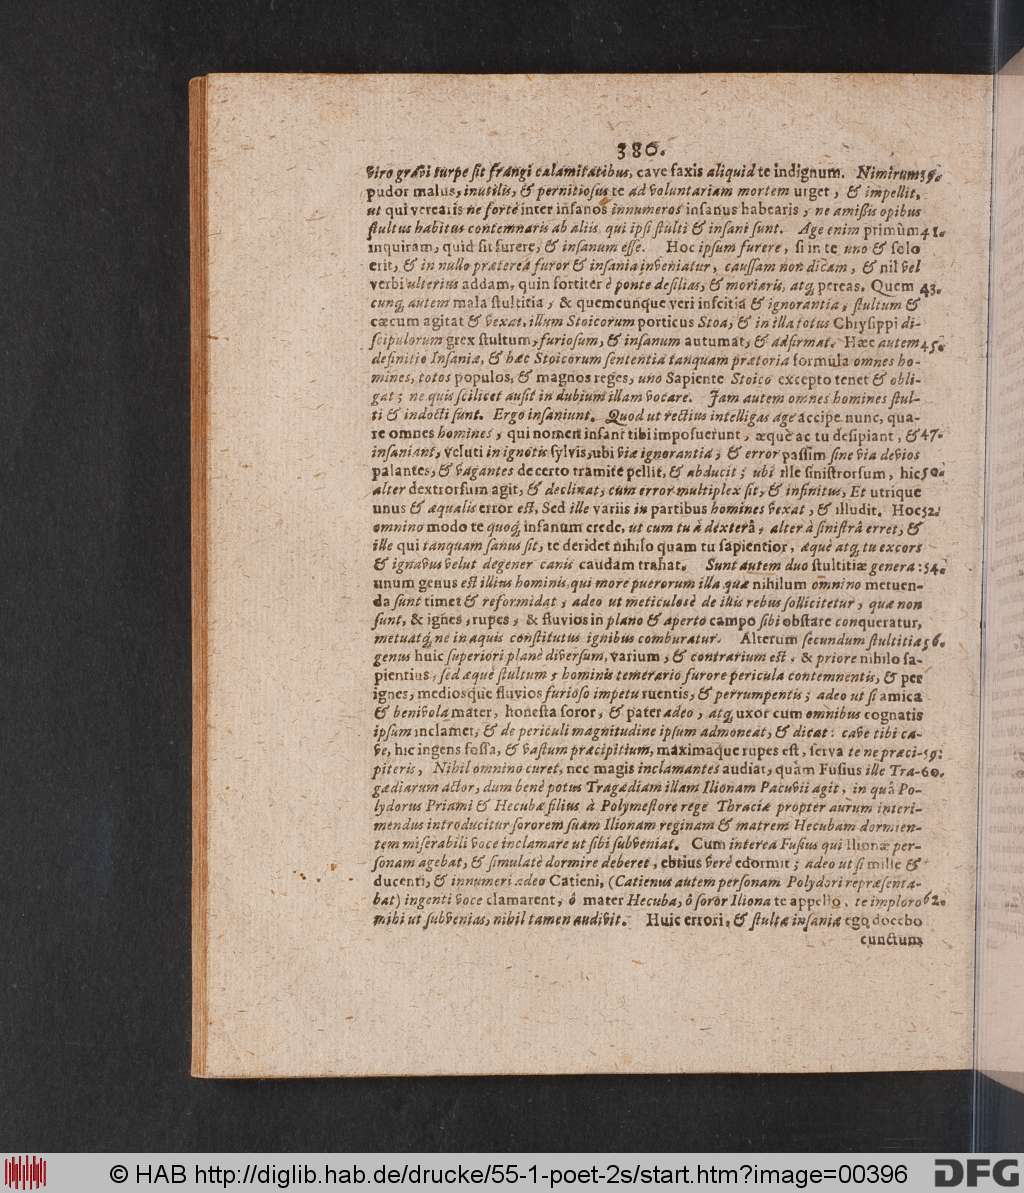 386.
viro gravi turpe sit frangi calamitatibus, cave faxis aliquid te indignum. Nimirum 39.
pudor malus, inutilis, & pernitiosus te ad voluntariam mortem urget, & impellit,
ut qui verearis ne forté inter insanos innumeros insanus habearis, ne amißis opibus
stultus habitus contemnaris ab aliis, qui ipsi stulti & insani sunt. Age enim primùm 41.
inquiram, quid sit furere, & insanum esse. Hoc ipsum furere, si in te uno & solo
erit, & in nullo præterea furor & insania inveniatur, caussam non dicam, & nil vel
verbi ulterius addam, quin fortitér è ponte desilias, & moriaris, atq; pereas. Quem 43.
cunq; autem mala stultitia, & quemcunque veri inscitia & ignorantia, stultum &
cæcum agitat & vexat, illum Stoicorum porticus Stoa, & in illa totus Chrysippi di-
scipulorum grex stultum, furiosum, & insanum autumat, & adfirmat. Hæc autem 45.
definitio Insaniæ, & hæc Stoicorum sententia tanquam prætoria formula omnes ho-
mines, totos populos, & magnos reges, uno Sapiente Stoico excepto tenet & obli-
gat; ne quis scilicet ausit in dubium illam vocare. Jam autem omnes homines stul-
ti & indocti sunt. Ergo insaniunt. Quod ut rectius intelligas age accipe nunc, qua-
re omnes homines, qui nomen insani tibi imposuerunt, æquè ac tu desipiant, & 47.
insaniant, veluti in ignotis sylvis, ubi viæ ignorantia, & error passim sine via devios
palantes, & vagantes de certo tramite pellit, & abducit; ubi ille sinistrorsum, hic 50.
alter dextrorsum agit, & declinat, cùm error multiplex sit, & infinitus, Et utrique
unus & æqualis error est, Sed ille variis in partibus homines vexat, & illudit. Hoc 52.
omnino modo te quoq; insanum crede, ut cum tu à dexterâ, alter à sinistrâ erret, &
ille qui tanquam sanus sit, te deridet nihilo quam tu sapientior, æquè atq; tu excors
& ignavus velut degener canis caudam trahat. Sunt autem duo stultitiæ genera: 54.
unum genus est illius hominis, qui more puerorum illa quæ nihilum omnino metuen-
da sunt timet & reformidat, adeo ut meticulosè de illis rebus sollicitetur, quæ non
sunt, & ignes, rupes, & fluvios in plano & aperto campo sibi obstare conqueratur,
metuatq; ne in aquis constitutus ignibus comburatur. Alterum secundum stultitiæ 56.
genus huic superiori planè diversum, varium, & contrarium est, & priore nihilo sa-
pientius, sed æquè stultum, hominis temerario furore pericula contemnentis, & per
ignes, mediosque fluvios furioso impetu ruentis, & perrumpentis; adeo ut si amica
& benivola mater, honesta soror, & pater adeo, atq; uxor cum omnibus cognatis
ipsum inclamet, & de periculi magnitudine ipsum admoneat, & dicat: cave tibi ca-
ve, hic ingens fossa, & vastum præcipitium, maximaque rupes est, serva te ne præci- 59.
piteris, Nihil omnino curet, nec magis inclamantes audiat, quàm Fusius ille Tra- 60.
gædiarum actor, dum benè potus Tragædiam illam Ilionam Pacuvii agit, in quâ Po-
lydorus Priami & Hecubæ filius à Polymestore rege Thraciæ propter aurum interi-
mendus introducitur sororem suam Ilionam reginam & matrem Hecubam dormien-
tem miserabili voce inclamare ut sibi subveniat. Cum interea Fusius qui Ilionæ per-
sonam agebat, & simulatè dormire deberet, ebrius verè edormit; adeo ut si mille &
ducenti, & innumeri adeo Catieni, (Catienus autem personam Polydori repræsenta-
bat) ingenti voce clamarent, ô mater Hecuba, ô soror Iliona te appello, te imploro 62.
mihi ut subvenias, nihil tamen audivit. Huic errori, & stultæ insaniæ ego docebo
cunctum
© HAB http://diglib.hab.de/drucke/55-1-poet-2s/start.htm?image=00396
DFG